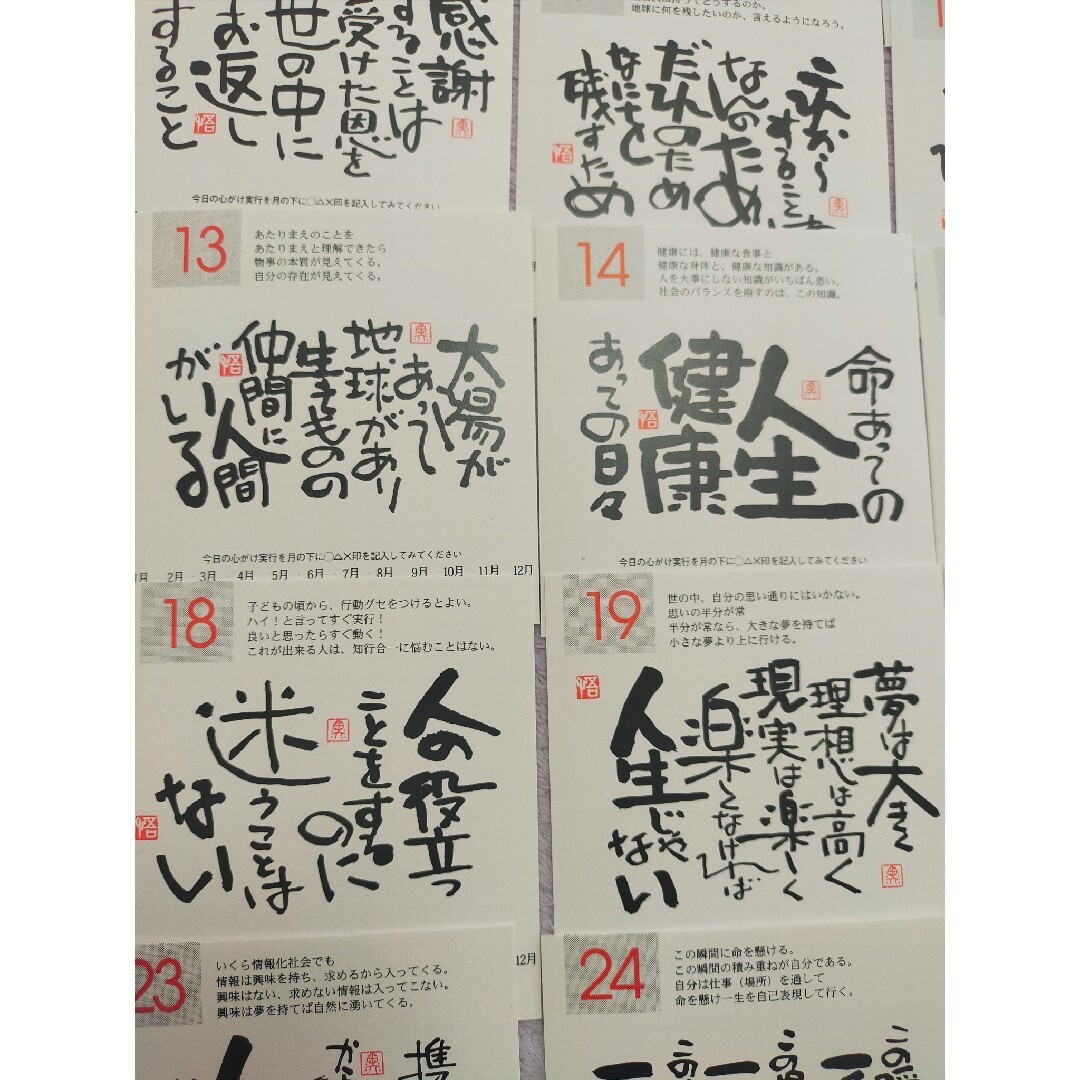 感謝
することは
受けた恩を
世の中に
お返し
すること
悟
今日の心がけ実行を月の下に○△×印を記入してみてください
地球に何を残したいのか、言えるようになろう。
これから
すること
なんのため
だれのため
なにを
残すため
悟
13
あたりまえのことを
あたりまえと理解できたら
物事の本質が見えてくる。
自分の存在が見えてくる。
太陽が
あって
地球があり
生きものの
仲間に
人間
がいる
悟
今日の心がけ実行を月の下に○△×印を記入してみてください
1月 2月 3月 4月 5月 6月 7月 8月 9月 10月 11月 12月
14
健康には、健康な食事と
健康な身体と、健康な知識がある。
人を大事にしない知識がいちばん悪い。
社会のバランスを崩すのは、この知識。
命あっての
人生
健康
あっての日々
悟
今日の心がけ実行を月の下に○△×印を記入してみてください
18
子どもの頃から、行動グセをつけるとよい。
ハイ!と言ってすぐ実行!
良いと思ったらすぐ動く!
これが出来る人は、知行合一に悩むことはない。
人の役立つ
ことをする
のに
迷うことは
ない
悟
12月
19
世の中、自分の思い通りにはいかない。
思いの半分が常
半分が常なら、大きな夢を持てば
小さな夢より上に行ける。
夢は大きく
理想は高く
現実は楽しく
楽しくなければ
人生じゃない
悟
23
いくら情報化社会でも
情報は興味を持ち、求めるから入ってくる。
興味はない、求めない情報は入ってこない。
興味は夢を持てば自然に湧いてくる。
24
この瞬間に命を懸ける。
この瞬間の積み重ねが自分である。
自分は仕事(場所)を通して
命を懸け一生を自己表現して行く。